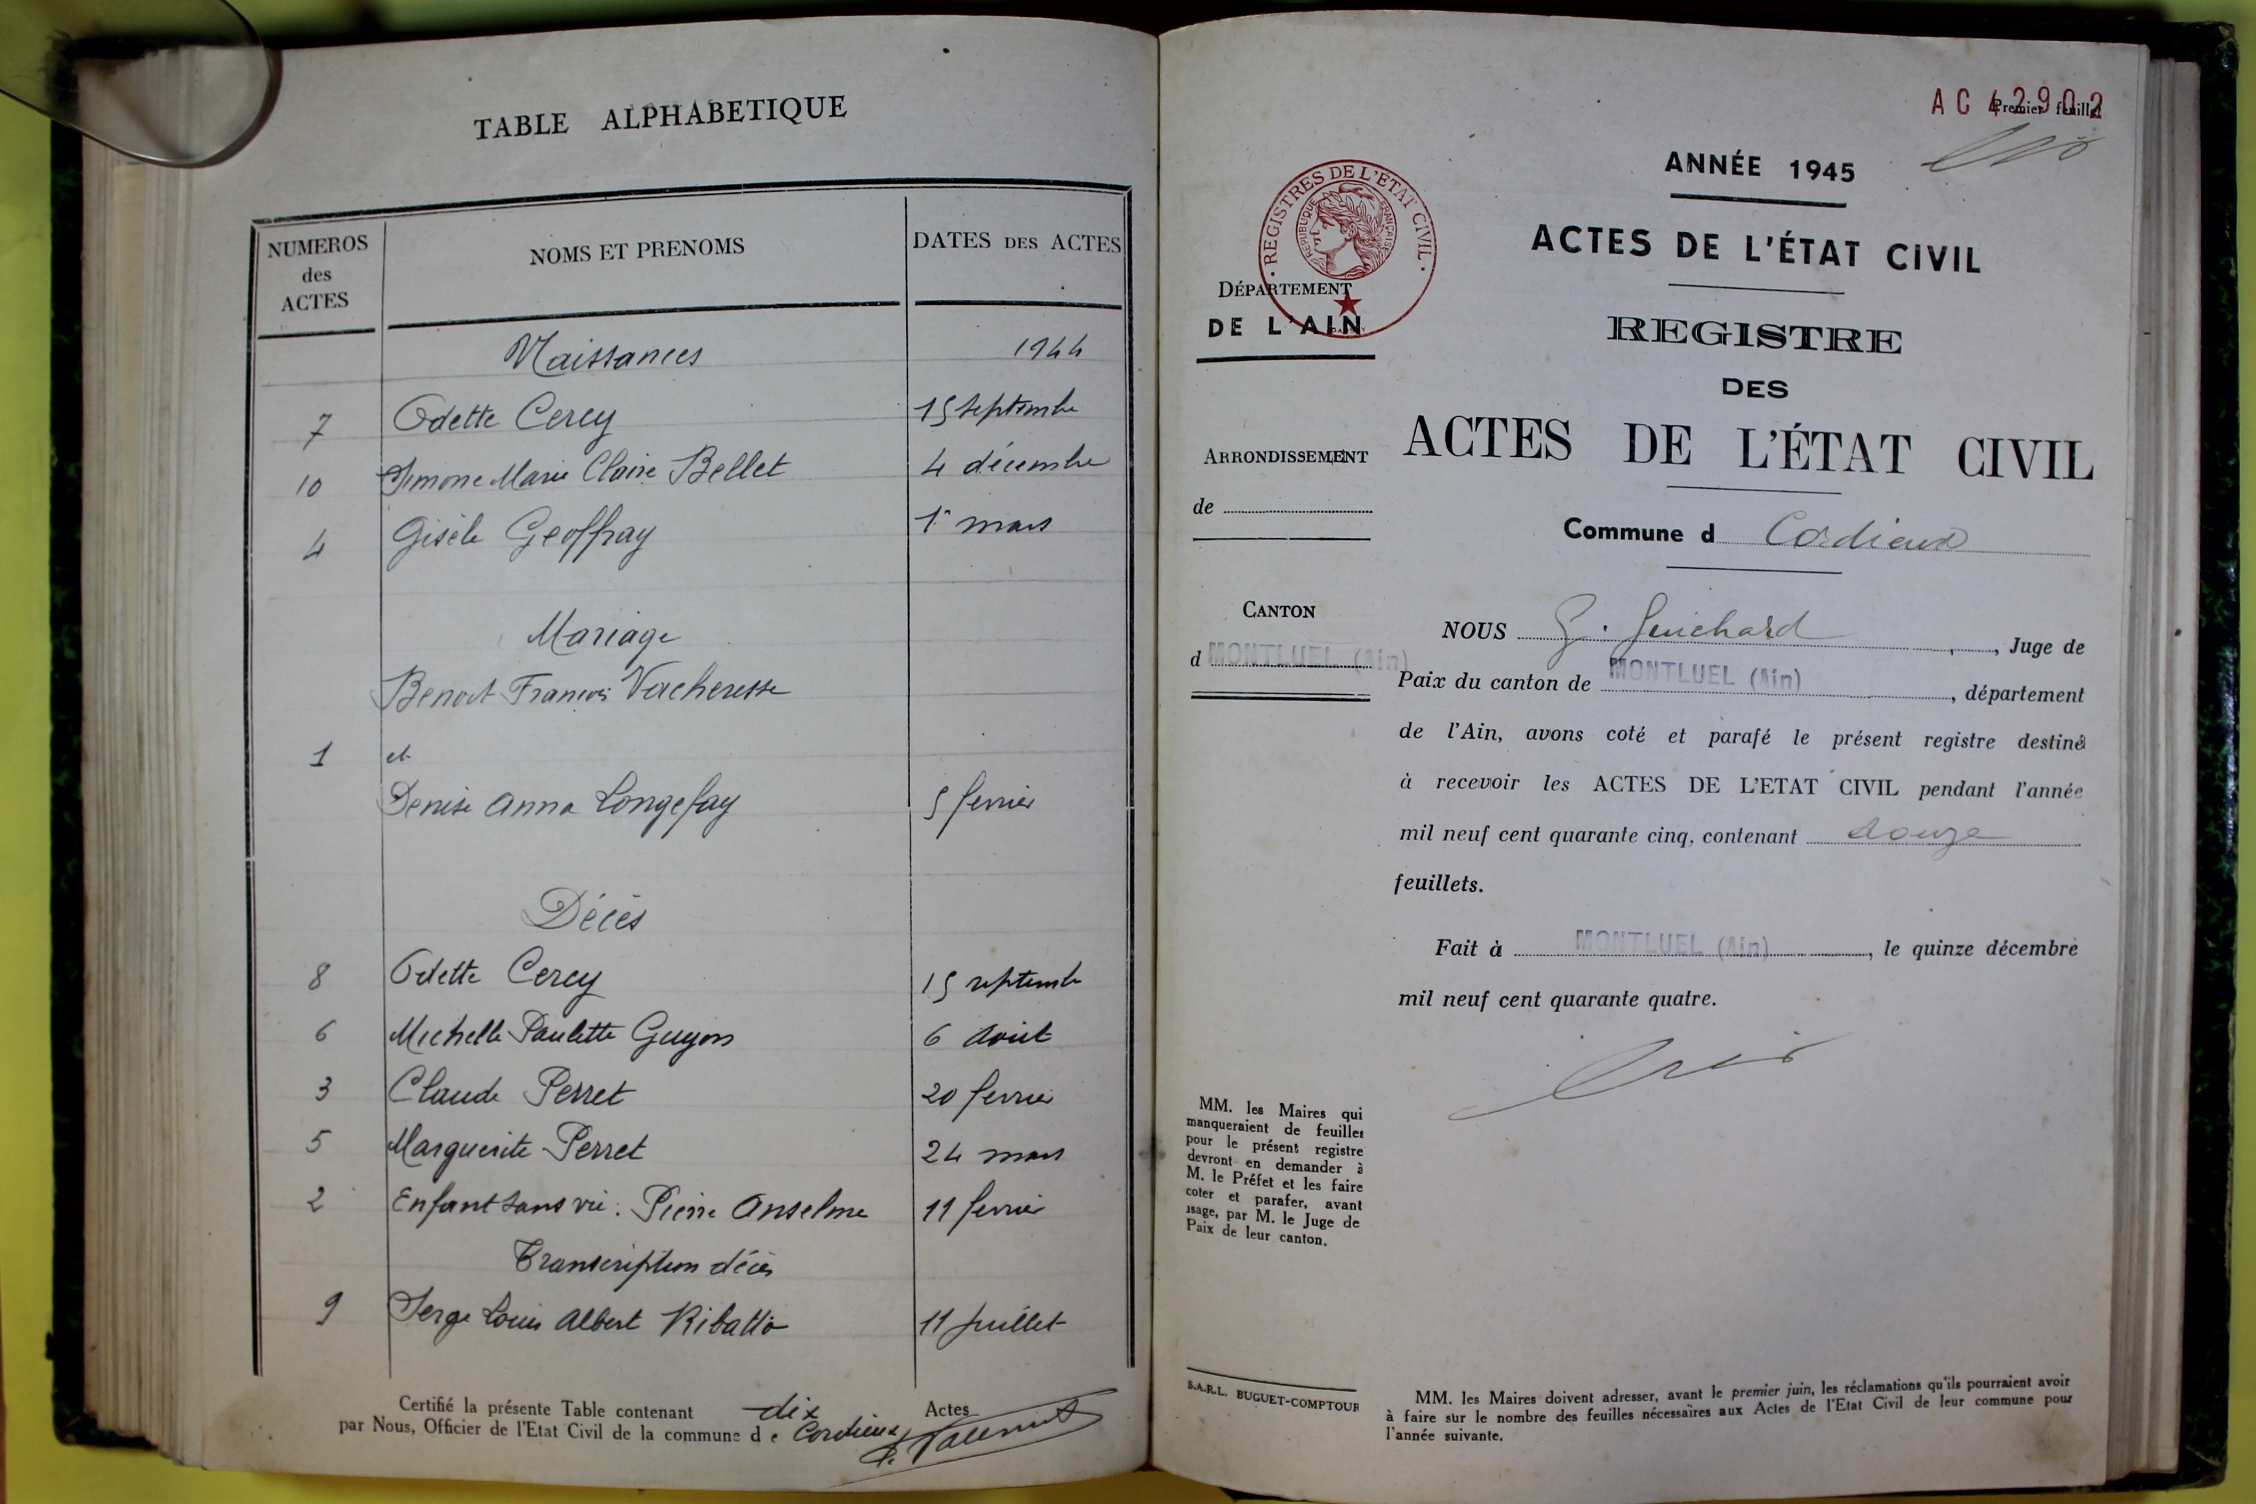 TABLE ALPHABETIQUE
NUMEROS des ACTES
NOMS ET PRENOMS
DATES DES ACTES
Naissances 1944
7 Odette Cercy 15 septembre
10 Simone Marie Claire Bellet 4 décembre
4 Gisèle Geoffray 1er mars
Mariage
Benoit François Vacheresse
1 et
Denise Anna Longefay 5 fevrier
Décès
8 Odette Cercy 15 septembre
6 Michelle Paulette Guyon 6 Août
3 Claude Perret 20 fevrier
5 Marguerite Perret 24 mars
2 Enfant sans vie : Pierre Anselme 11 fevrier
Transcription décès
9 Serge Louis Albert Ribatto 11 Juillet
Certifié la présente Table contenant dix Actes
par Nous, Officier de l'Etat Civil de la commune de Cordieux
AC 42902
Premier feuillet
ANNÉE 1945
ACTES DE L'ÉTAT CIVIL
REGISTRES DE L'ETAT CIVIL
REPUBLIQUE FRANÇAISE
DÉPARTEMENT
DE L'AIN
REGISTRE
DES
ACTES DE L'ÉTAT CIVIL
ARRONDISSEMENT
de
Commune d Cordieux
CANTON
d MONTLUEL (Ain)
NOUS G. Guichard, Juge de
Paix du canton de MONTLUEL (Ain), département
de l'Ain, avons coté et parafé le présent registre destiné
à recevoir les ACTES DE L'ETAT CIVIL pendant l'année
mil neuf cent quarante cinq, contenant douze
feuillets.
Fait à MONTLUEL (Ain), le quinze décembre
mil neuf cent quarante quatre.
MM. les Maires qui
manqueraient de feuilles
pour le présent registre
devront en demander à
M. le Préfet et les faire
coter et parafer, avant
usage, par M. le Juge de
Paix de leur canton.
S.A.R.L. BUGUET-COMPTOUR
MM. les Maires doivent adresser, avant le premier juin, les réclamations qu'ils pourraient avoir
à faire sur le nombre des feuilles nécessaires aux Actes de l'Etat Civil de leur commune pour
l'année suivante.